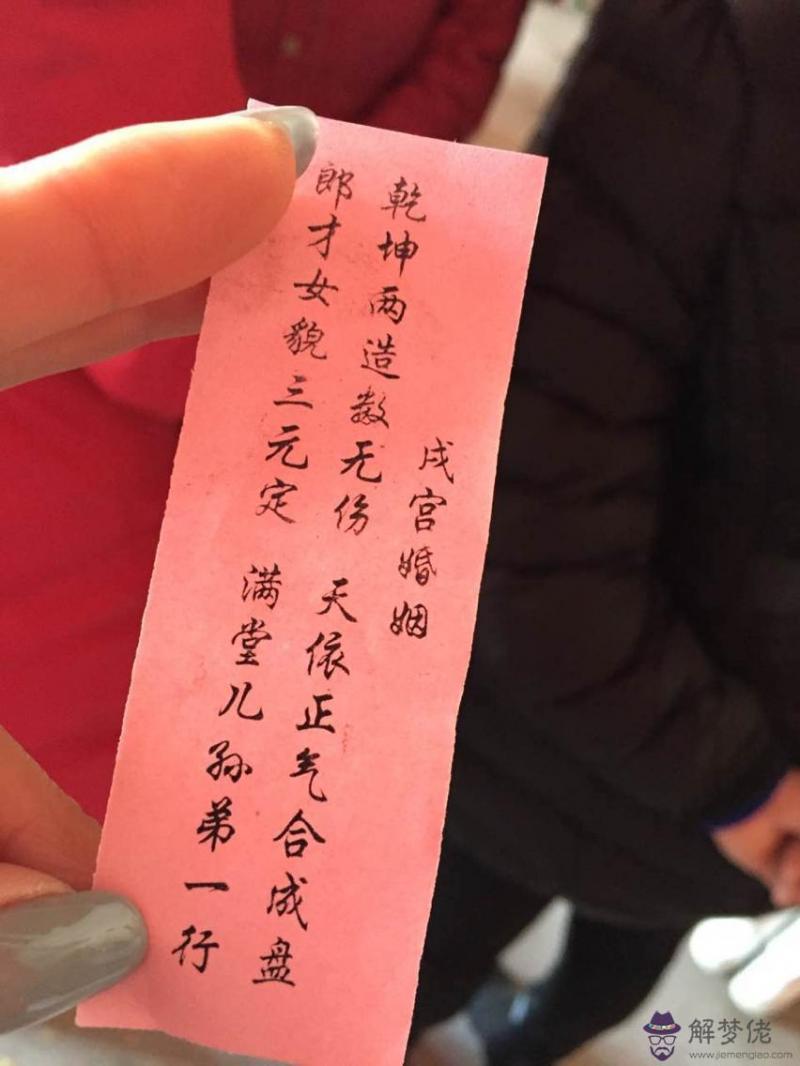 戌宫婚姻
乾坤两造数无伤 天依正气合成盘
郎才女貌三元定 满堂儿孙弟一行
解梦佬
www.jiemenglao.com